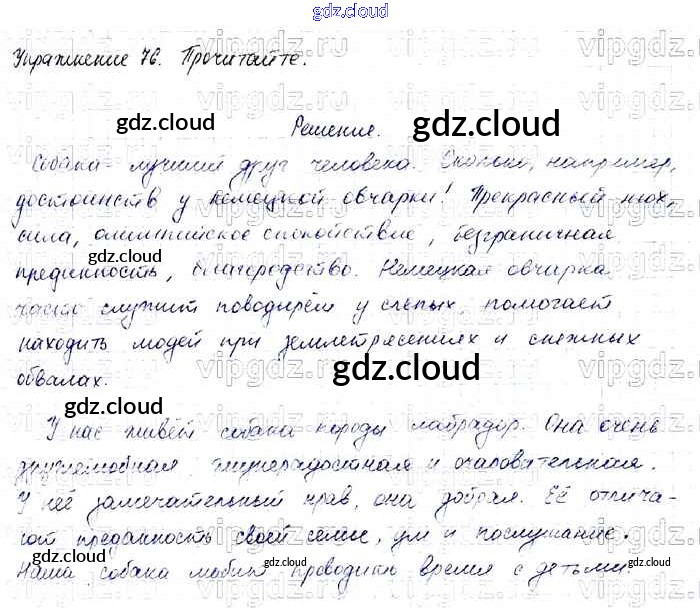 gdz.cloud
Упражнение 76. Прочитайте.
Решение.
Собака - лучший друг человека. Сколько, например,
достоинств у немецкой овчарки! Прекрасный нюх,
сила, олимпийское спокойствие, безграничная
преданность, благородство. Немецкая овчарка
часто служит поводырём у слепых, помогает
находить людей при землетрясениях и снежных
обвалах.
У нас живёт собака породы лабрадор. Она очень
дружелюбная, жизнерадостная и очаровательная.
У неё замечательный нрав, она добрая. Её отлича-
ют преданность своей семье, ум и послушание.
Наша собака любит проводить время с детьми.